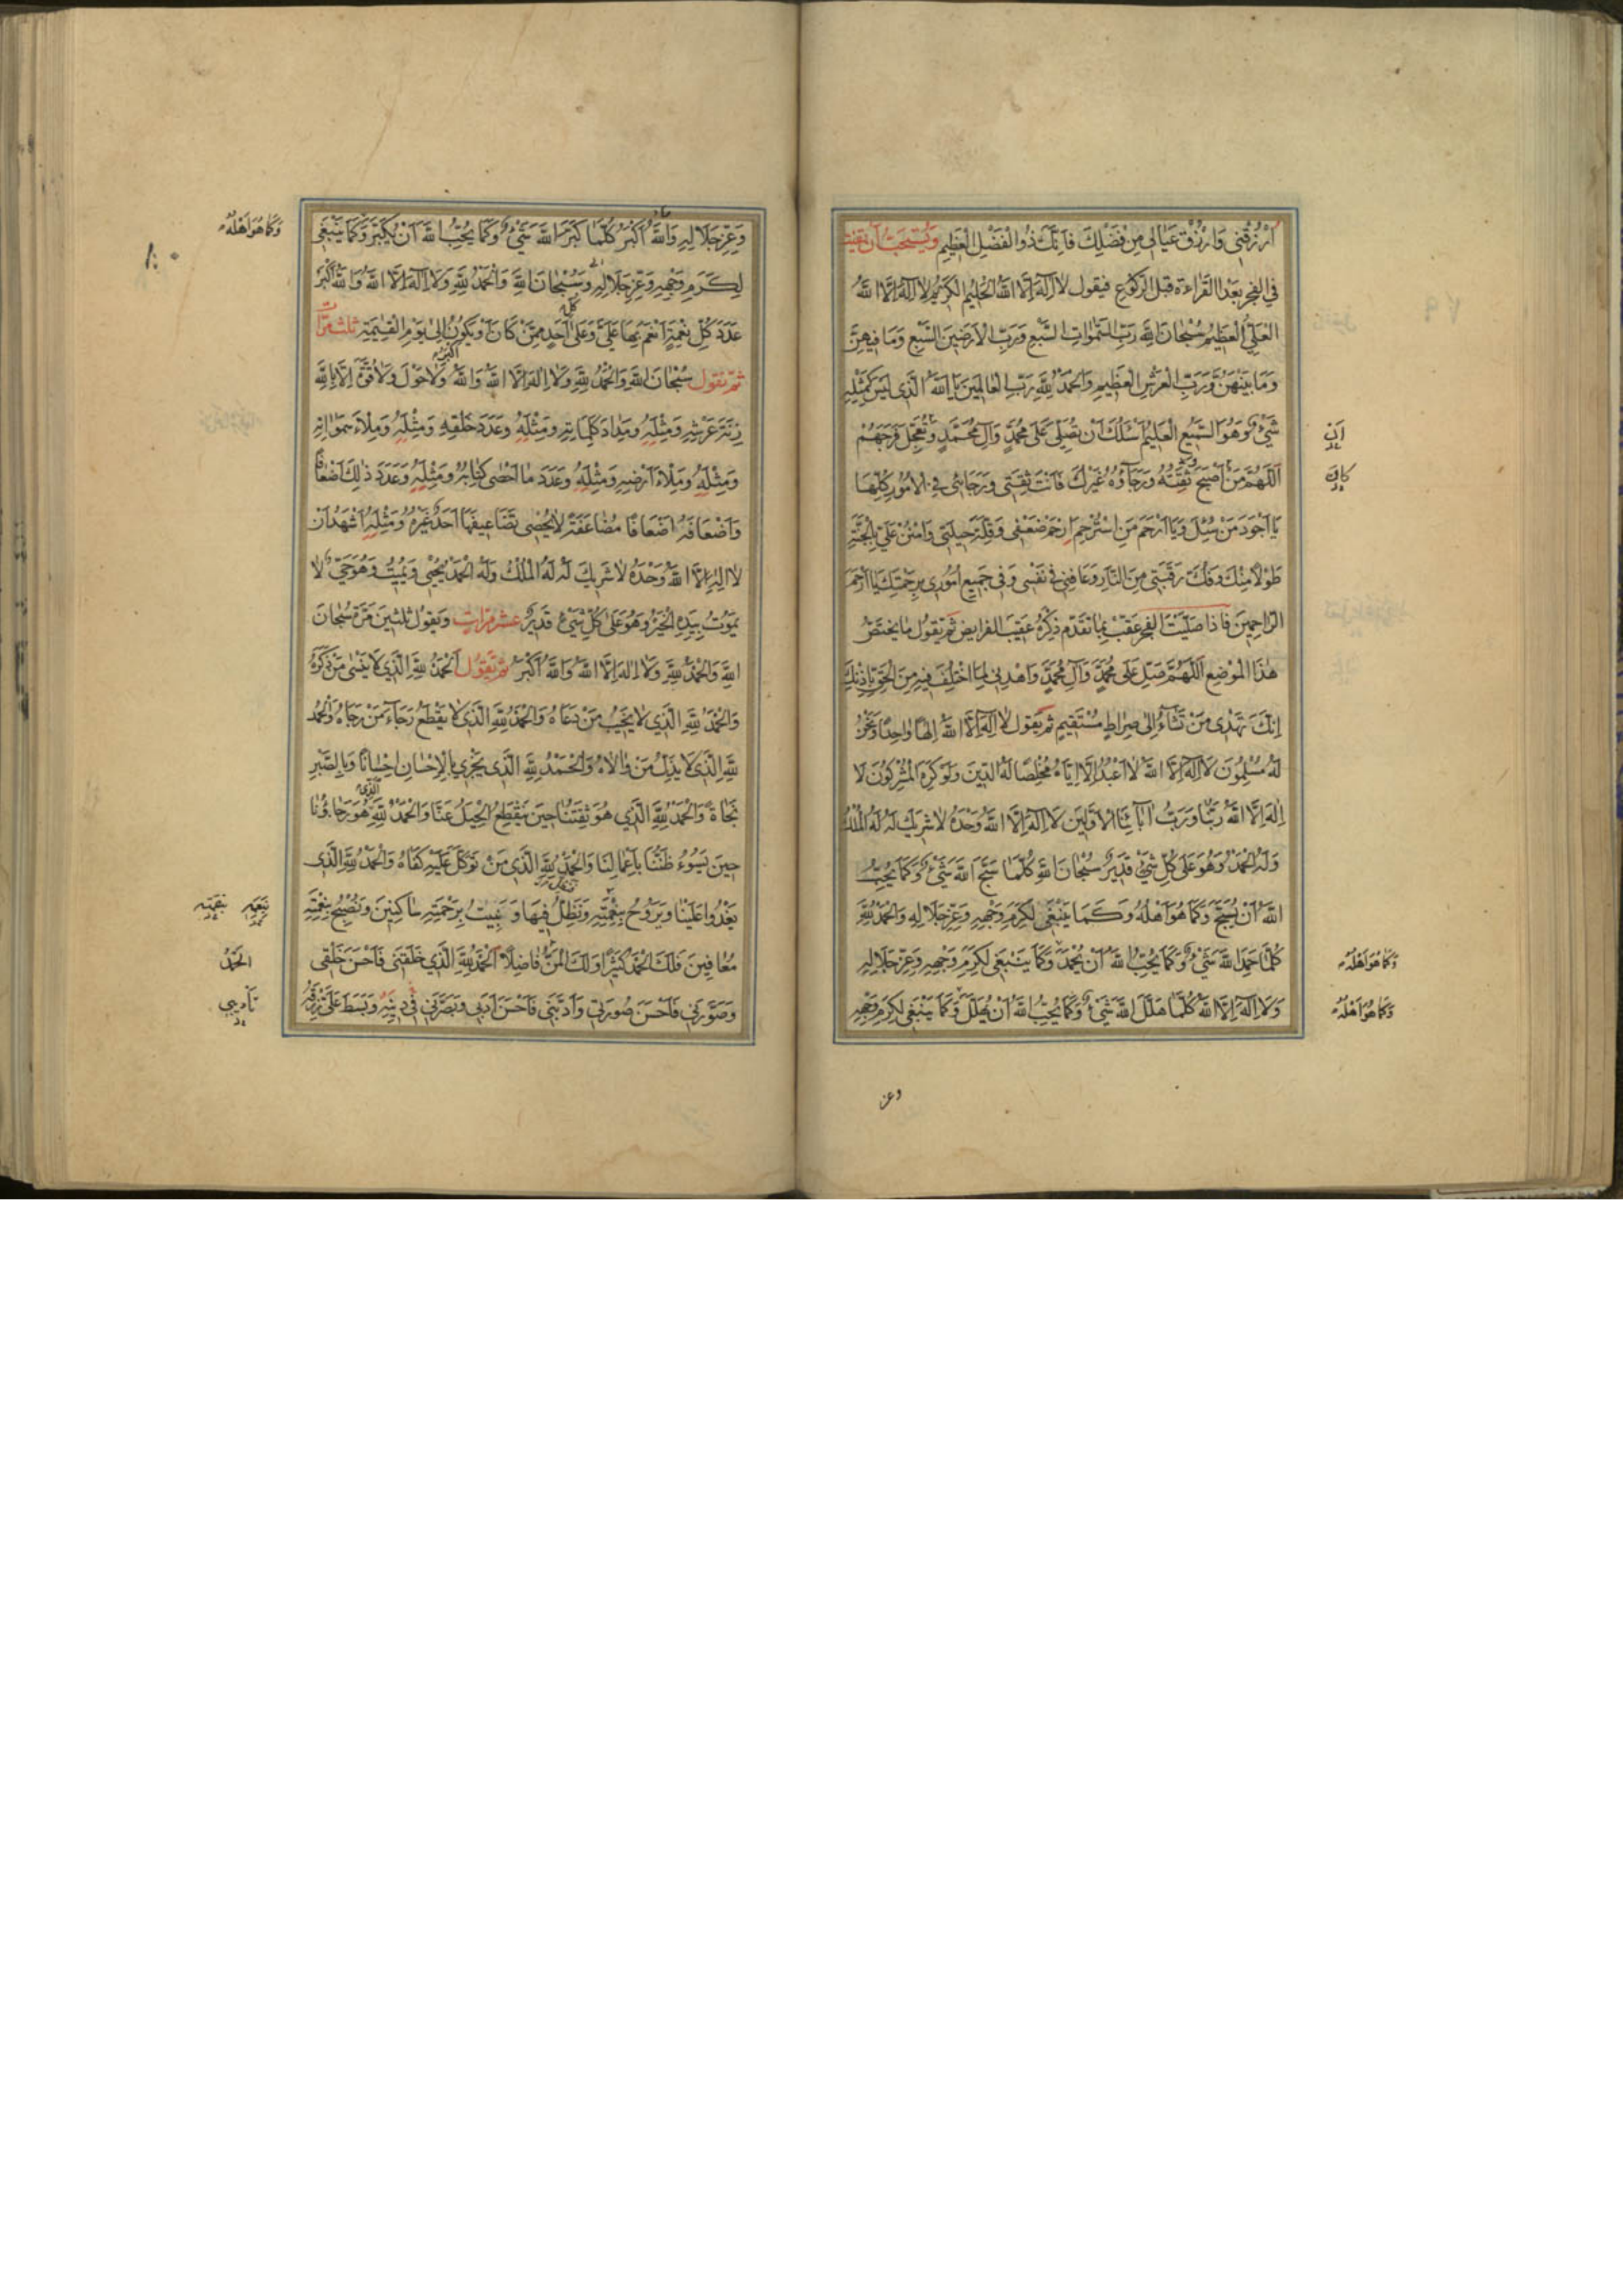 اُرْزُقْنِي وَارْزُقْ عَيَالِي مِنْ فَضْلِكَ فَاِنَّكَ ذُو الْفَضْلِ الْعَظِيمِ وَيُسْتَحَبُّ اَنْ يَقْنُتَ
فِي الْفَجْرِ بَعْدَ الْقَرَاءَةِ قَبْلَ الرُّكُوعِ فيقول لا اِلَهَ اِلَّا اللَّهُ الْحَلِيمُ الْكَرِيمُ لا اِلَهَ اِلَّا اللَّهُ
الْعَلِيُّ الْعَظِيمُ سُبْحَانَ اللَّهِ رَبِّ السَّمَوَاتِ السَّبْعِ وَرَبِّ الْاَرَضِينَ السَّبْعِ وَمَا فِيهِنَّ
وَمَا بَيْنَهُنَّ وَرَبِّ الْعَرْشِ الْعَظِيمِ وَالْحَمْدُ لِلَّهِ رَبِّ الْعَالَمِينَ يَا اَللَّهُ الَّذِي لَيْسَ كَمِثْلِهِ
شَيْءٌ وَهُوَ السَّمِيعُ الْعَلِيمُ اَسْئَلُكَ اَنْ تُصَلِّيَ عَلَى مُحَمَّدٍ وَآلِ مُحَمَّدٍ وَتُعَجِّلَ فَرَجَهُمْ
اَللَّهُمَّ مَنْ اَصْبَحَ ثِقَتُهُ وَرَجَاؤُهُ غَيْرَكَ فَاَنْتَ ثِقَتِي وَرَجَائِي فِي الْاُمُورِ كُلِّهَا
يَا اَجْوَدَ مَنْ سُئِلَ وَيَا اَرْحَمَ مَنِ اسْتُرْحِمَ اِرْحَمْ ضَعْفِي وَقِلَّةَ حِيلَتِي وَامْنُنْ عَلَيَّ بِالْجَنَّةِ
طَوْلًا مِنْكَ وَفُكَّ رَقَبَتِي مِنَ النَّارِ وَعَافِنِي فِي نَفْسِي وَفِي جَمِيعِ اُمُورِي بِرَحْمَتِكَ يَا اَرْحَمَ
الرَّاحِمِينَ فَاِذَا صَلَّيْتَ الْفَجْرَ عَقِّبْ بِمَا تَقَدَّمَ ذِكْرُهُ عَقِيبَ الْفَرَايِضِ ثُمَّ يَقُولُ مَا يَخْتَصُّ
هٰذَا الْمَوْضِعَ اَللَّهُمَّ صَلِّ عَلَى مُحَمَّدٍ وَآلِ مُحَمَّدٍ وَاهْدِنِي لِمَا اخْتُلِفَ فِيهِ مِنَ الْحَقِّ بِاِذْنِكَ
اِنَّكَ تَهْدِي مَنْ تَشَاءُ اِلَى صِرَاطٍ مُسْتَقِيمٍ ثم يَقُول لَا اِلَهَ اِلَّا اللَّهُ اِلٰهًا وَاحِدًا وَنَحْنُ
لَهُ مُسْلِمُونَ لَا اِلَهَ اِلَّا اللَّهُ لَا اَعْبُدُ اِلَّا اِيَّاهُ مُخْلِصًا لَهُ الدِّينَ وَلَوْ كَرِهَ الْمُشْرِكُونَ لَا
اِلَهَ اِلَّا اللَّهُ رَبُّنَا وَرَبُّ اٰبَائِنَا الْاَوَّلِينَ لَا اِلَهَ اِلَّا اللَّهُ وَحْدَهُ لَا شَرِيكَ لَهُ لَهُ الْمُلْكُ
وَلَهُ الْحَمْدُ وَهُوَ عَلَى كُلِّ شَيْءٍ قَدِيرٌ سُبْحَانَ اللَّهِ كُلَّمَا سَبَّحَ اللَّهَ شَيْءٌ وَكَمَا يُحِبُّ
اللَّهُ اَنْ يُسَبَّحَ وَكَمَا هُوَ اَهْلُهُ وَكَمَا يَنْبَغِي لِكَرَمِ وَجْهِهِ وَعِزِّ جَلَالِهِ وَالْحَمْدُ لِلَّهِ
كُلَّمَا حَمِدَ اللَّهَ شَيْءٌ وَكَمَا يُحِبُّ اللَّهُ اَنْ يُحْمَدَ وَكَمَا يَنْبَغِي لِكَرَمِ وَجْهِهِ وَعِزِّ جَلَالِهِ
وَلَا اِلَهَ اِلَّا اللَّهُ كُلَّمَا هَلَّلَ اللَّهَ شَيْءٌ وَكَمَا يُحِبُّ اللَّهُ اَنْ يُهَلَّلَ وَكَمَا يَنْبَغِي لِكَرَمِ وَجْهِهِ
وَكَمَا هُوَ اَهْلُهُ
وَكَمَا هُوَ اَهْلُهُ
وعز
وَعِزِّ جَلَالِهِ وَاللَّهُ اَكْبَرُ كُلَّمَا كَبَّرَ اللَّهَ شَيْءٌ وَكَمَا يُحِبُّ اللَّهُ اَنْ يُكَبَّرَ وَكَمَا يَنْبَغِي
لِكَرَمِ وَجْهِهِ وَعِزِّ جَلَالِهِ وَسُبْحَانَ اللَّهِ وَالْحَمْدُ لِلَّهِ وَلَا اِلَهَ اِلَّا اللَّهُ وَاللَّهُ اَكْبَرُ
عَدَدَ كُلِّ نِعْمَةٍ اَنْعَمَ بِهَا عَلَيَّ وَعَلَى اَحَدٍ مِمَّنْ كَانَ اَوْ يَكُونُ اِلَى يَوْمِ الْقِيٰمَةِ ثلث مرّات
ثمّ تقول سُبْحَانَ اللَّهِ وَالْحَمْدُ لِلَّهِ وَلَا اِلَهَ اِلَّا اللَّهُ وَاللَّهُ اَكْبَرُ وَلَا حَوْلَ وَلَا قُوَّةَ اِلَّا بِاللَّهِ
زِنَةَ عَرْشِهِ وَمِثْلَهُ وَمِدَادَ كَلِمَاتِهِ وَمِثْلَهُ وَعَدَدَ خَلْقِهِ وَمِثْلَهُ وَمِلْاَءَ سَمَوَاتِهِ
وَمِثْلَهُ وَمِلْاَءَ اَرْضِهِ وَمِثْلَهُ وَعَدَدَ مَا اَحْصَى كِتَابُهُ وَمِثْلَهُ وَعَدَدَ ذٰلِكَ اَضْعَافًا
وَاَضْعَافَهُ اَضْعَافًا مُضَاعَفَةً لَا يُحْصِي تَضَاعِيفَهَا اَحَدٌ غَيْرُهُ وَمِثْلَهُ اَشْهَدُ اَنْ
لَا اِلَهَ اِلَّا اللَّهُ وَحْدَهُ لَا شَرِيكَ لَهُ لَهُ الْمُلْكُ وَلَهُ الْحَمْدُ يُحْيِي وَيُمِيتُ وَهُوَ حَيٌّ لَا
يَمُوتُ بِيَدِهِ الْخَيْرُ وَهُوَ عَلَى كُلِّ شَيْءٍ قَدِيرٌ عشر مرّات وَيَقُولُ ثلثين مَرَّة سُبْحَانَ
اللَّهِ وَالْحَمْدُ لِلَّهِ وَلَا اِلَهَ اِلَّا اللَّهُ وَاللَّهُ اَكْبَرُ ثم تقول اَلْحَمْدُ لِلَّهِ الَّذِي لَا يَنْسَى مَنْ ذَكَرَهُ
وَالْحَمْدُ لِلَّهِ الَّذِي لَا يُخَيِّبُ مَنْ دَعَاهُ وَالْحَمْدُ لِلَّهِ الَّذِي لَا يَقْطَعُ رَجَاءَ مَنْ رَجَاهُ وَالْحَمْدُ
لِلَّهِ الَّذِي لَا يُذِلُّ مَنْ وَالَاهُ وَالْحَمْدُ لِلَّهِ الَّذِي يَجْزِي بِالْاِحْسَانِ اِحْسَانًا وَبِالصَّبْرِ
نَجَاةً وَالْحَمْدُ لِلَّهِ الَّذِي هُوَ ثِقَتُنَا حِينَ تَنْقَطِعُ الْحِيَلُ عَنَّا وَالْحَمْدُ لِلَّهِ الَّذِي هُوَ رَجَاؤُنَا
حِينَ يَسُوءُ ظَنُّنَا بِاَعْمَالِنَا وَالْحَمْدُ لِلَّهِ الَّذِي مَنْ تَوَكَّلَ عَلَيْهِ كَفَاهُ وَالْحَمْدُ لِلَّهِ الَّذِي
يَغْدُوا عَلَيْنَا وَيَرُوحُ بِنِعَمِهِ وَنَظِلُّ فِيهَا وَنَبِيتُ بِرَحْمَتِهِ سَاكِنِينَ وَنُصْبِحُ بِنِعْمَتِهِ
مُعَافِينَ فَلَكَ الْحَمْدُ كَثِيرًا وَلَكَ الْمَنُّ فَاضِلًا اَلْحَمْدُ لِلَّهِ الَّذِي خَلَقَنِي فَاَحْسَنَ خَلْقِي
وَصَوَّرَنِي فَاَحْسَنَ صُورَتِي وَاَدَّبَنِي فَاَحْسَنَ اَدَبِي وَبَصَّرَنِي فِي دِينِهِ وَبَسَطَ عَلَيَّ رِزْقَهُ
وَكَمَا هُوَ اَهْلُهُ
الحَمْدُ
تَأْدِيبِي